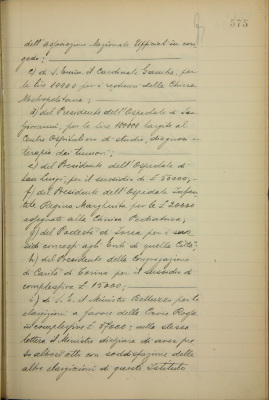 575
dell'associazione Nazionale Ufficiali in con
gedo;
c) di S. Em. il Cardinale Gamba, per
le lire 10000 per i restauri della Chiesa
Metropolitana;
d) del Presidente dell'Ospedale di San
Giovanni, per le lire 100000 largite al
Centro Ospitaliero di studio, diagnosi e
terapia dei tumori;
e) del Presidente dell'Ospedale di
San Luigi, per il sussidio di £ 50000;
f) del Presidente dell'Ospedale Infan
tile Regina Margherita per le £ 20000
assegnate alla Clinica Pediatrica;
g) del Podestà di Torino per i sus
sidi concessi agli Enti di quella Città;
h) del Presidente della Congregazione
di Carità di Torino per il sussidio di
complessive £ 15000;
i) di S. E. il Ministro Belluzzo per le
elargizioni a favore della Croce Rossa
in complessive £ 57000; nella stessa
lettera il Ministro dichiara di aver pre
so altresì atto con soddisfazione delle
altre elargizioni di questo Istituto